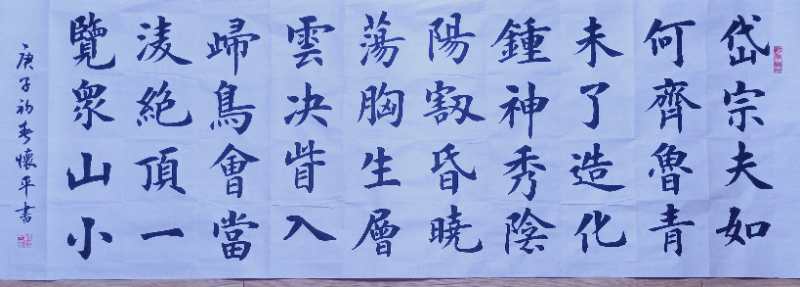 岱宗夫如
何齊魯青
未了造化
鍾神秀陰
陽割昏曉
蕩胸生層
雲决眥入
歸鳥會當
淩絶頂一
覽衆山小
庚子初春懷平書